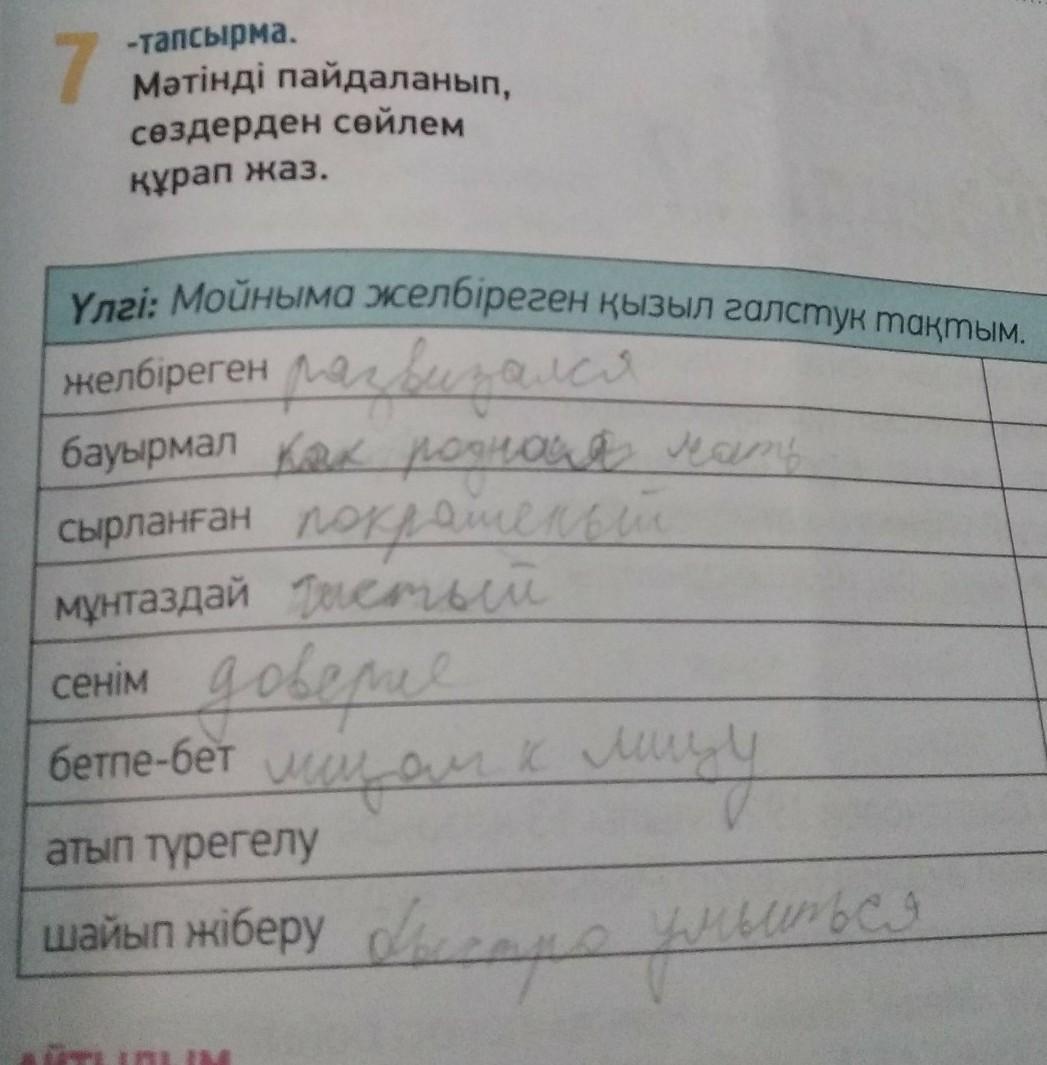 7 -тапсырма.
Мәтінді пайдаланып,
сөздерден сөйлем
құрап жаз.
Үлгі: Мойныма желбіреген қызыл галстук тақтым.
желбіреген развизался
бауырмал как родная мать
сырланған покрашеный
мұнтаздай чистый
сенім доверие
бетпе-бет лицом к лицу
атып түрегелу
шайып жіберу быстро умыться
АЙТЫЛЫМ